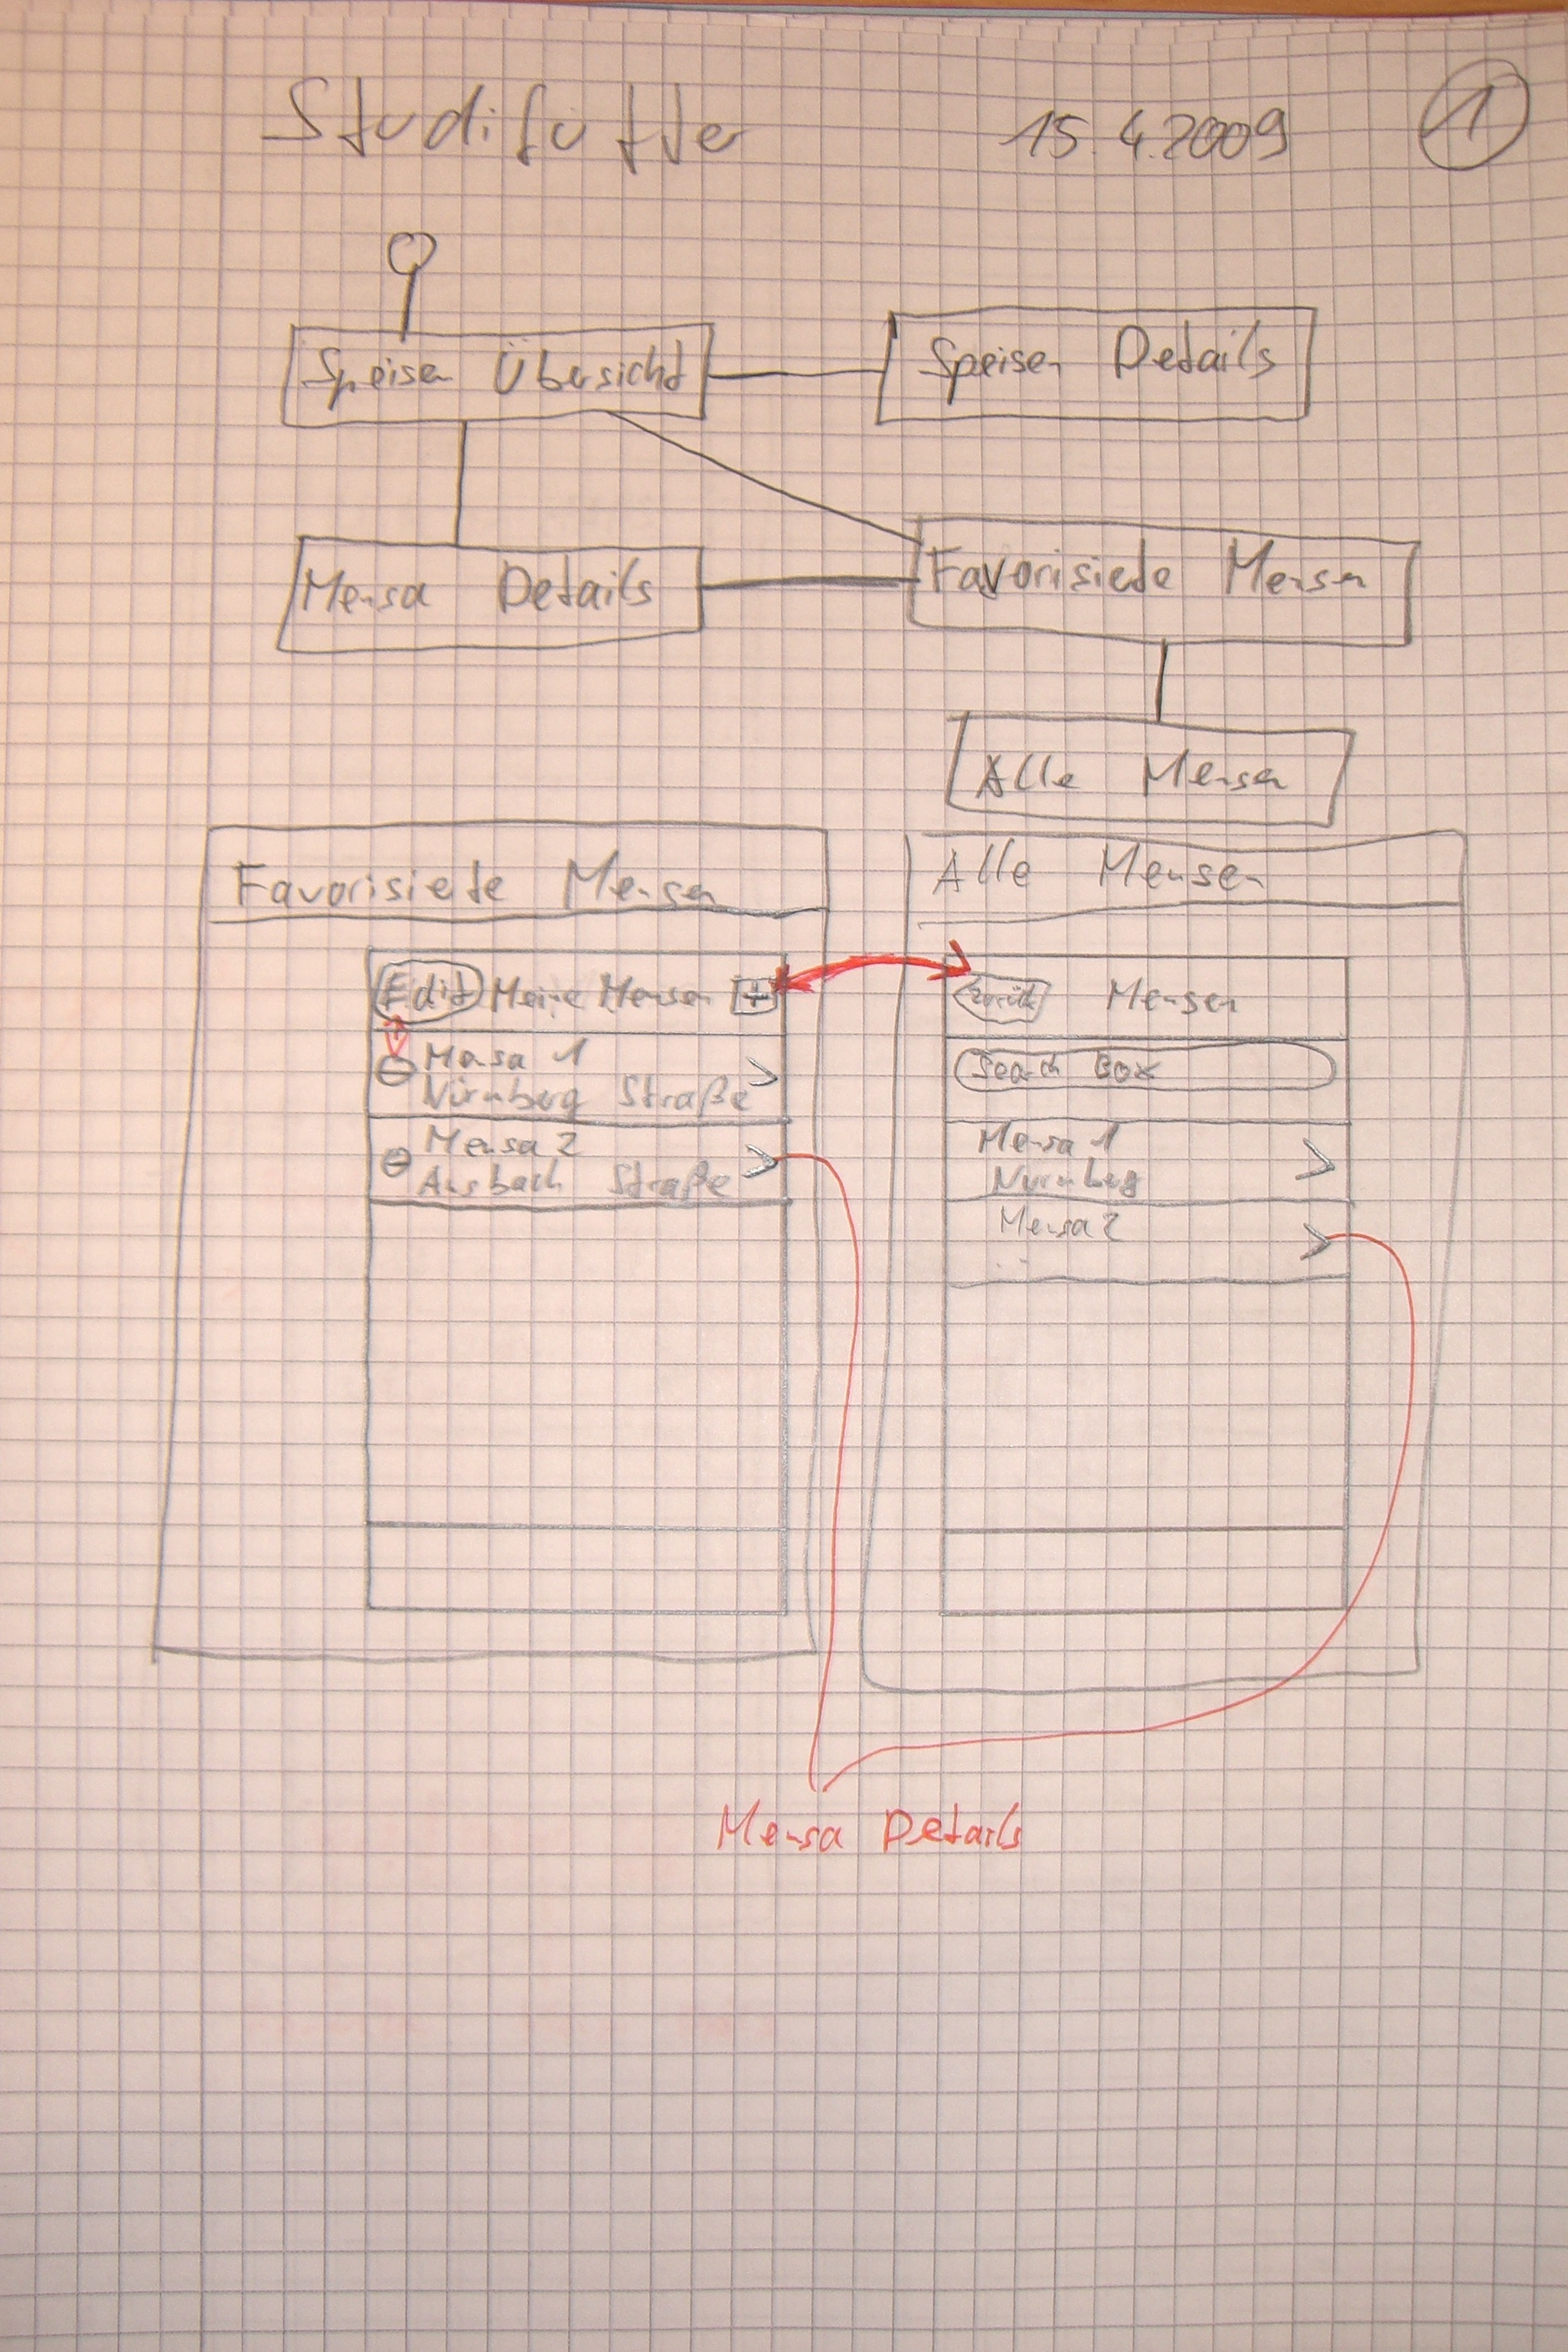 Studifutter 15.4.2009 1
Speisen Übersicht
Speisen Details
Mensa Details
Favorisierte Mensen
Alle Mensen
Favorisierte Mensen
Edit Meine Mensen +
Mensa 1 >
Nürnberg Straße
Mensa 2 >
Ansbach Straße
Alle Mensen
Zurück Mensen
Search Box
Mensa 1 >
Nürnberg
Mensa 2 >
...
Mensa Details